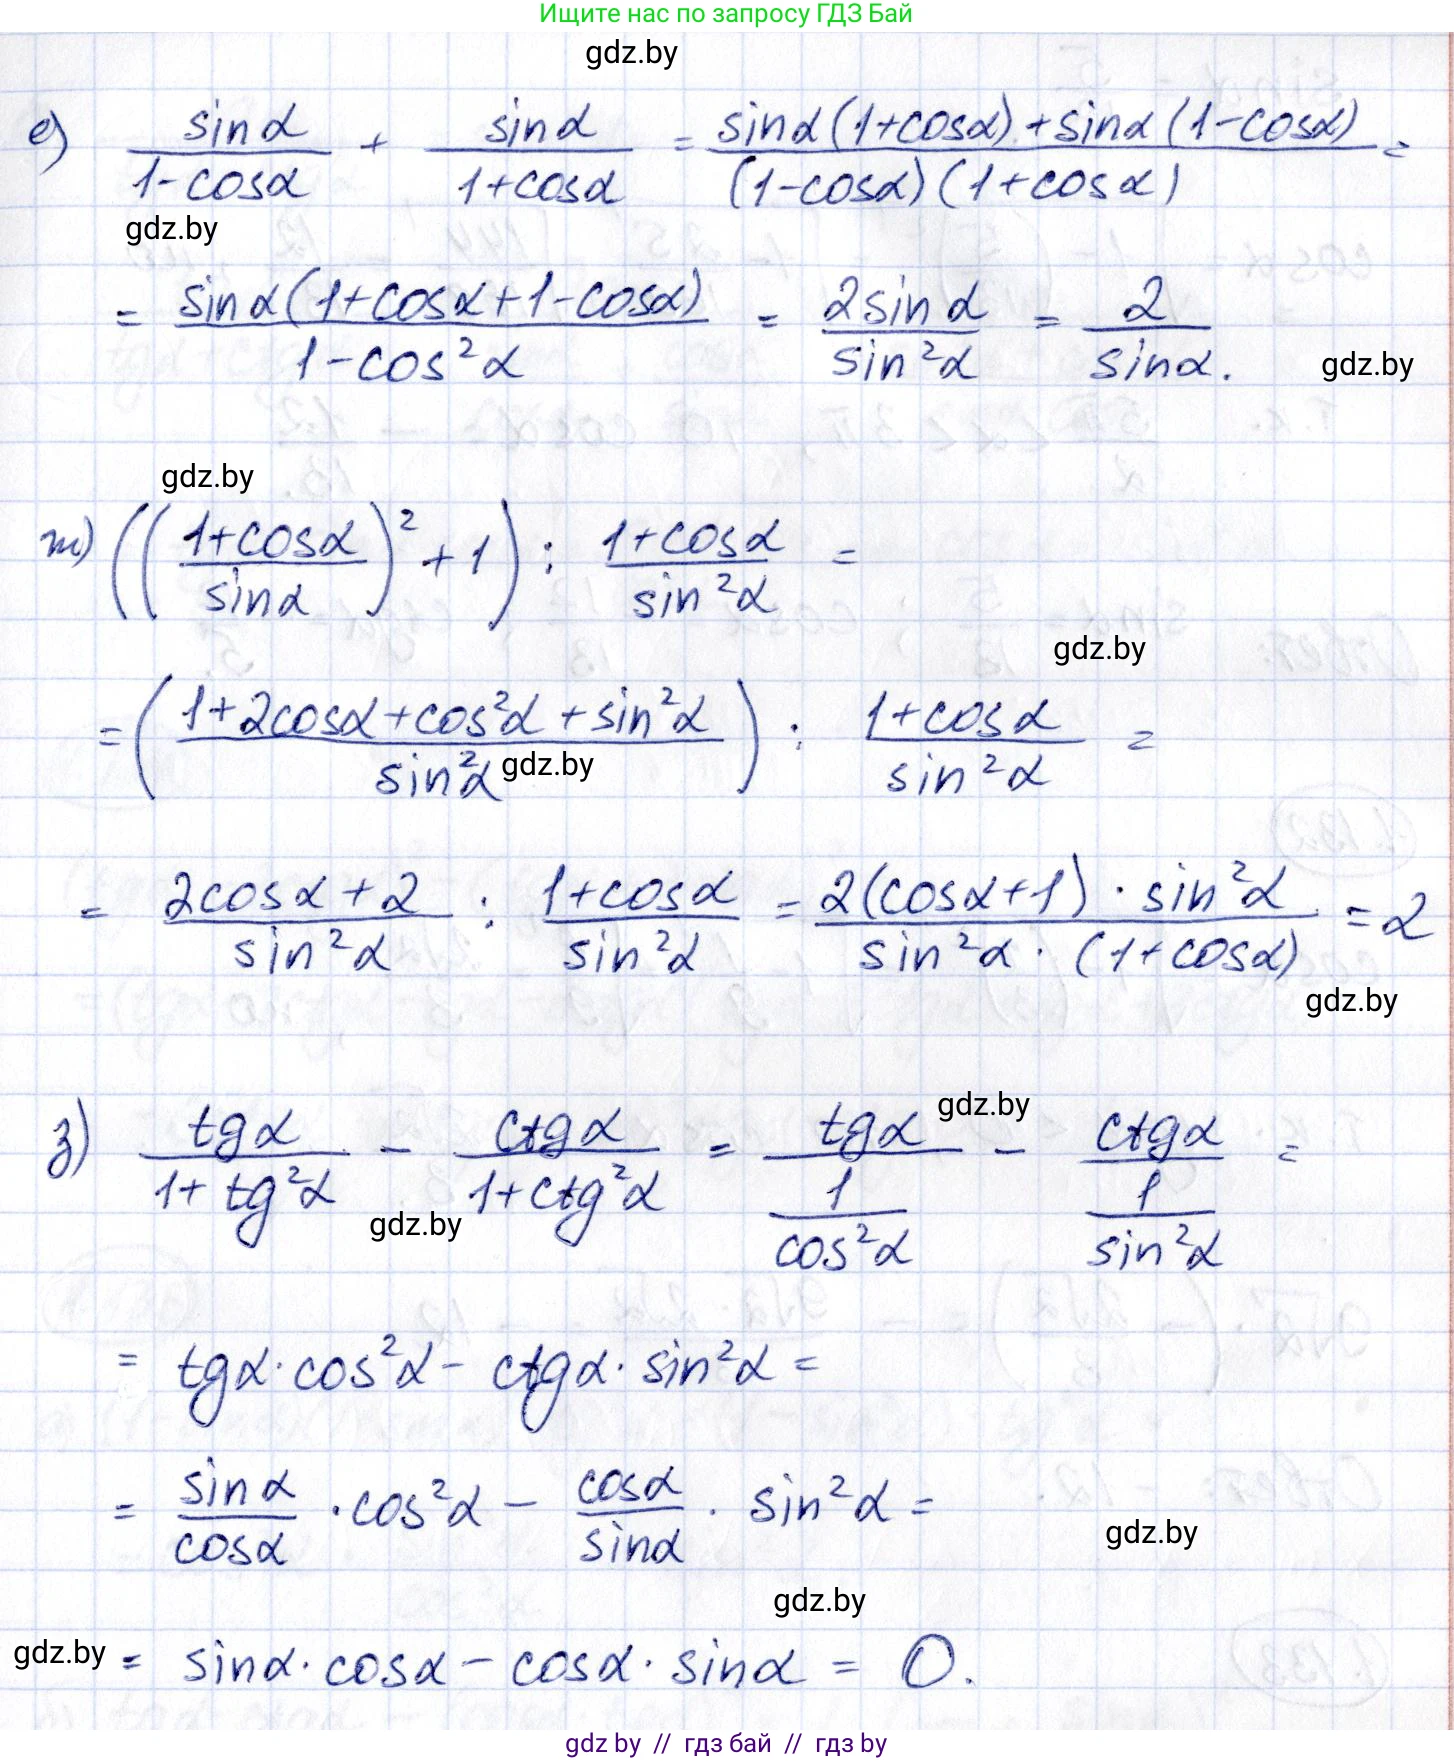 Ищите нас по запросу ГДЗ Бай
gdz.by
е) sinα/(1-cosα) + sinα/(1+cosα) = (sinα(1+cosα)+sinα(1-cosα))/((1-cosα)(1+cosα)) =
gdz.by
= sinα(1+cosα+1-cosα)/(1-cos²α) = 2sinα/sin²α = 2/sinα.
gdz.by
gdz.by
ж) (((1+cosα)/sinα)² + 1) : (1+cosα)/sin²α =
gdz.by
= ((1+2cosα+cos²α+sin²α)/sin²α) : (1+cosα)/sin²α =
gdz.by
= (2cosα+2)/sin²α : (1+cosα)/sin²α = (2(cosα+1)·sin²α)/(sin²α·(1+cosα)) = 2
gdz.by
gdz.by
з) tgα/(1+tg²α) - ctgα/(1+ctg²α) = tgα/(1/cos²α) - ctgα/(1/sin²α) =
gdz.by
= tgα·cos²α - ctgα·sin²α =
= sinα/cosα ·cos²α - cosα/sinα · sin²α =
gdz.by
gdz.by
gdz.by
= sinα·cosα - cosα·sinα = 0.
gdz.by // гдз бай // гдз by